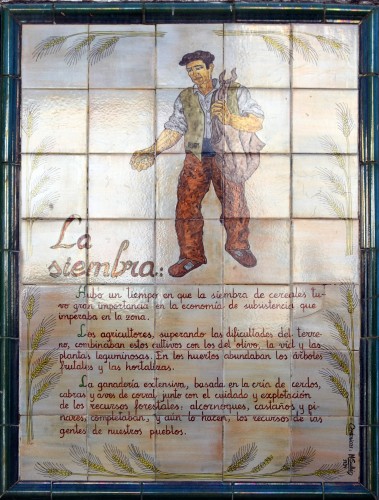 La
siembra:
Hubo un tiempo en que la siembra de cereales tu-
vo gran importancia en la economía de subsistencia que
imperaba en la zona.
Los agricultores, superando las dificultades del terre-
no, combinaban estos cultivos con los del olivo, la vid y las
plantas leguminosas. En los huertos abundaban los árboles
frutales y las hortalizas.
La ganadería extensiva, basada en la cría de cerdos,
cabras y aves de corral, junto con el cuidado y explotación
de los recursos forestales: alcornoques, castaños y pi-
nares, completaban, y aún lo hacen, los recursos de las
gentes de nuestros pueblos.